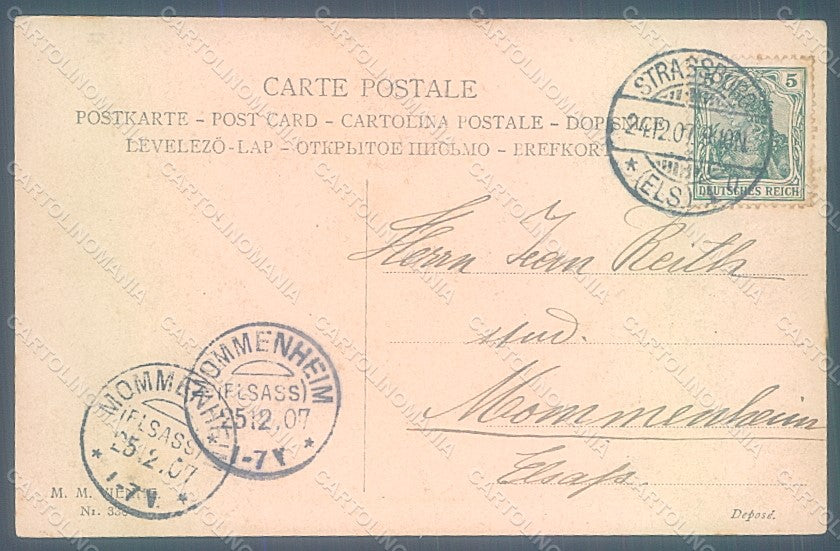 CARTE POSTALE
POSTKARTE - POST CARD - CARTOLINA POSTALE -
LEVELEZŐ-LAP - ОТКРЫТОЕ ПИСЬМО - BREFKORT
STRASSBURG
24.12.07
* (ELS.)
5
DEUTSCHES REICH
Herrn Jean Reith
stud.
Mommenheim
Elsaß.
MOMMENHEIM
(ELSASS)
25.12.07
* 1-7 V. *
MOMMENHEIM
(ELSASS)
25.12.07
* 1-7 V. *
M. M. VIENNE
Nr.
Deposé.
CARTOLINOMANIA